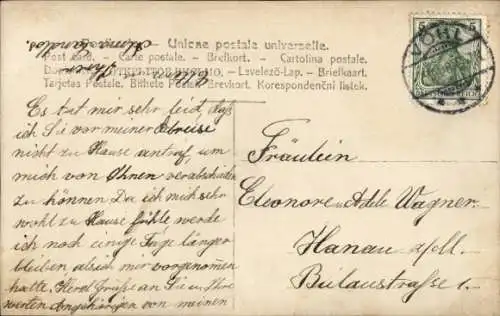 Unione postale universelle.
Post card. — Carte postale. — Brefkort. — Cartolina postale.
— Levelező-Lap. — Briefkaart.
Tarjetas Postale. Bilhete Postal Brevkort. Korespondenční listek.
5 5
VÖHL
Es tat mir sehr leid, daß
ich Sie vor meiner Abreise
nicht zu Hause antraf, um
mich von Ihnen verabschieden
zu können. Da ich mich sehr
wohl zu Hause fühle werde
ich noch einige Tage länger
bleiben, als ich mir vorgenommen
hatte. Herzl. Grüße an Sie u. Ihre
werten Angehörigen von meinen
Ihrer
Fräulein
Eleonore u. Adele Wagner.
Hanau a/M.
Bülaustraße 1.